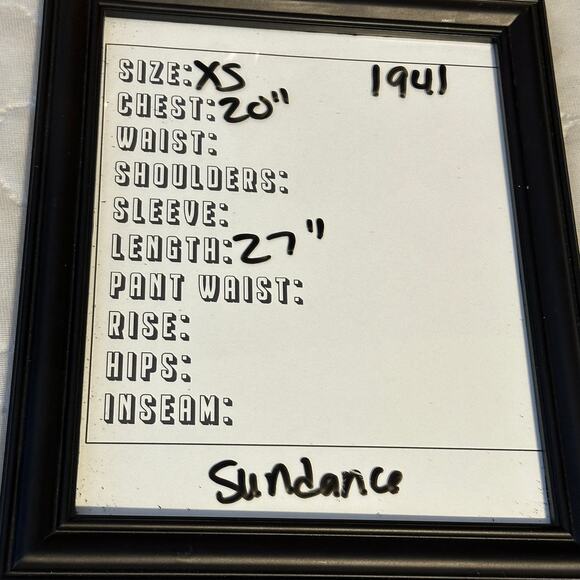 SIZE: XS 1941
CHEST: 20"
WAIST:
SHOULDERS:
SLEEVE:
LENGTH: 27"
PANT WAIST:
RISE:
HIPS:
INSEAM:
Sundance